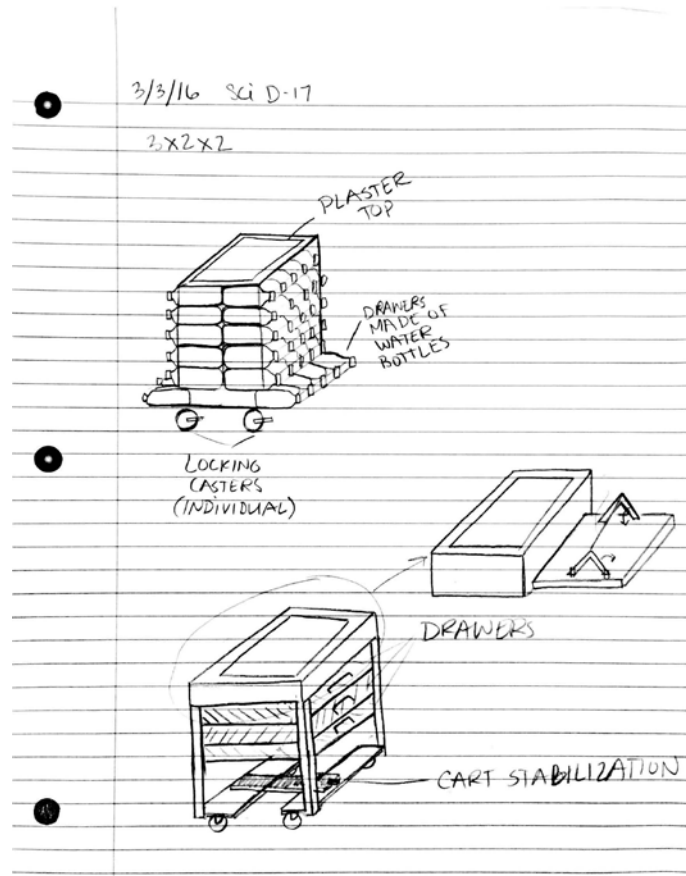 3/3/16 Sci D-17
3x2x2
PLASTER
TOP
DRAWERS
MADE OF
WATER
BOTTLES
LOCKING
CASTERS
(INDIVIDUAL)
DRAWERS
CART STABILIZATION